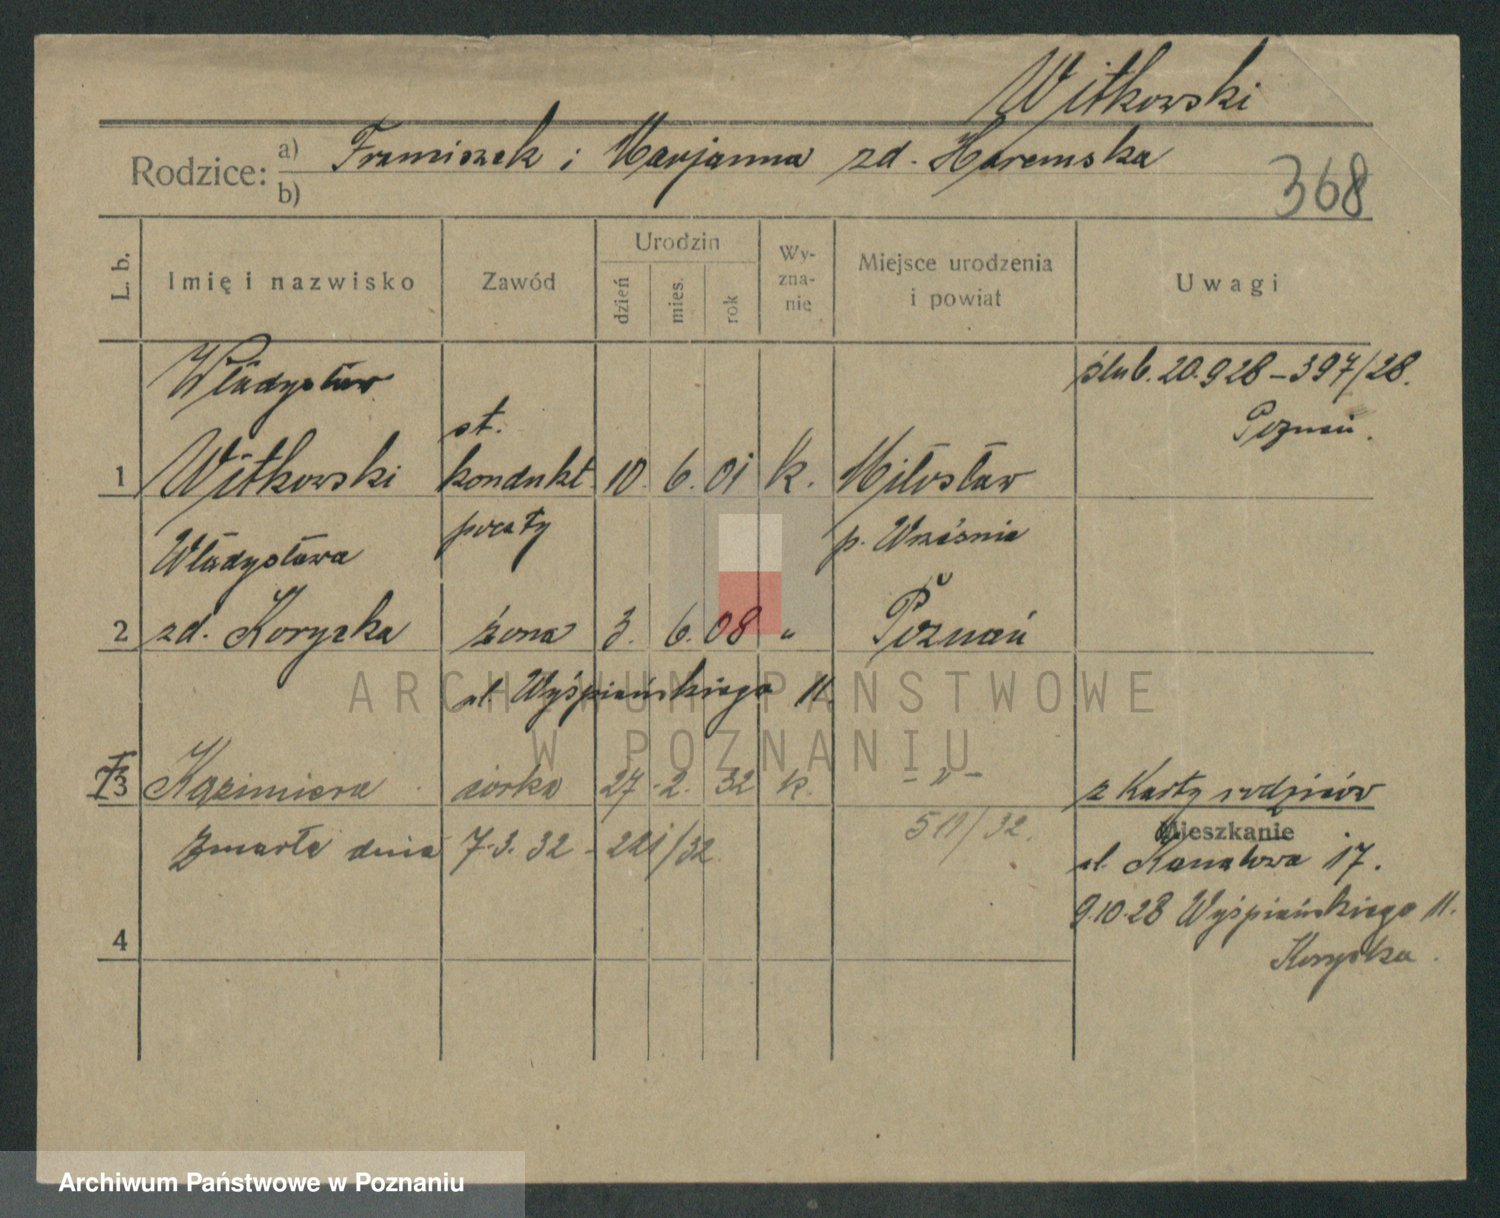 Witkowski
Rodzice: a) Franciszek i Marjanna zd. Haremska
b)
368
L. b.
Imię i nazwisko
Zawód
Urodzin
dzień
mies.
rok
Wy-
zna-
nie
Miejsce urodzenia
i powiat
Uwagi
Władysław
ślub. 20.9 28 – 397/28.
Poznań.
st.
1 Witkowski kondukt. 10. 6. 01 k. Miłosław
poczty p. Września
Władysława
2 zd. Korycka żona 3. 6. 08 " Poznań
ul. Wyśpiańskiego 11.
† 3 Kazimiera córka 27 -2. 32 k. – " –
z Karty rodziców
511/32.
Mieszkanie
Zmarła dnia 7.3. 32 - 221/32.
ul. Kanałowa 17.
9.10.28 Wyśpiańskiego 11.
4
Korycka.
ARCHIWUM PAŃSTWOWE
W POZNANIU
Archiwum Państwowe w Poznaniu